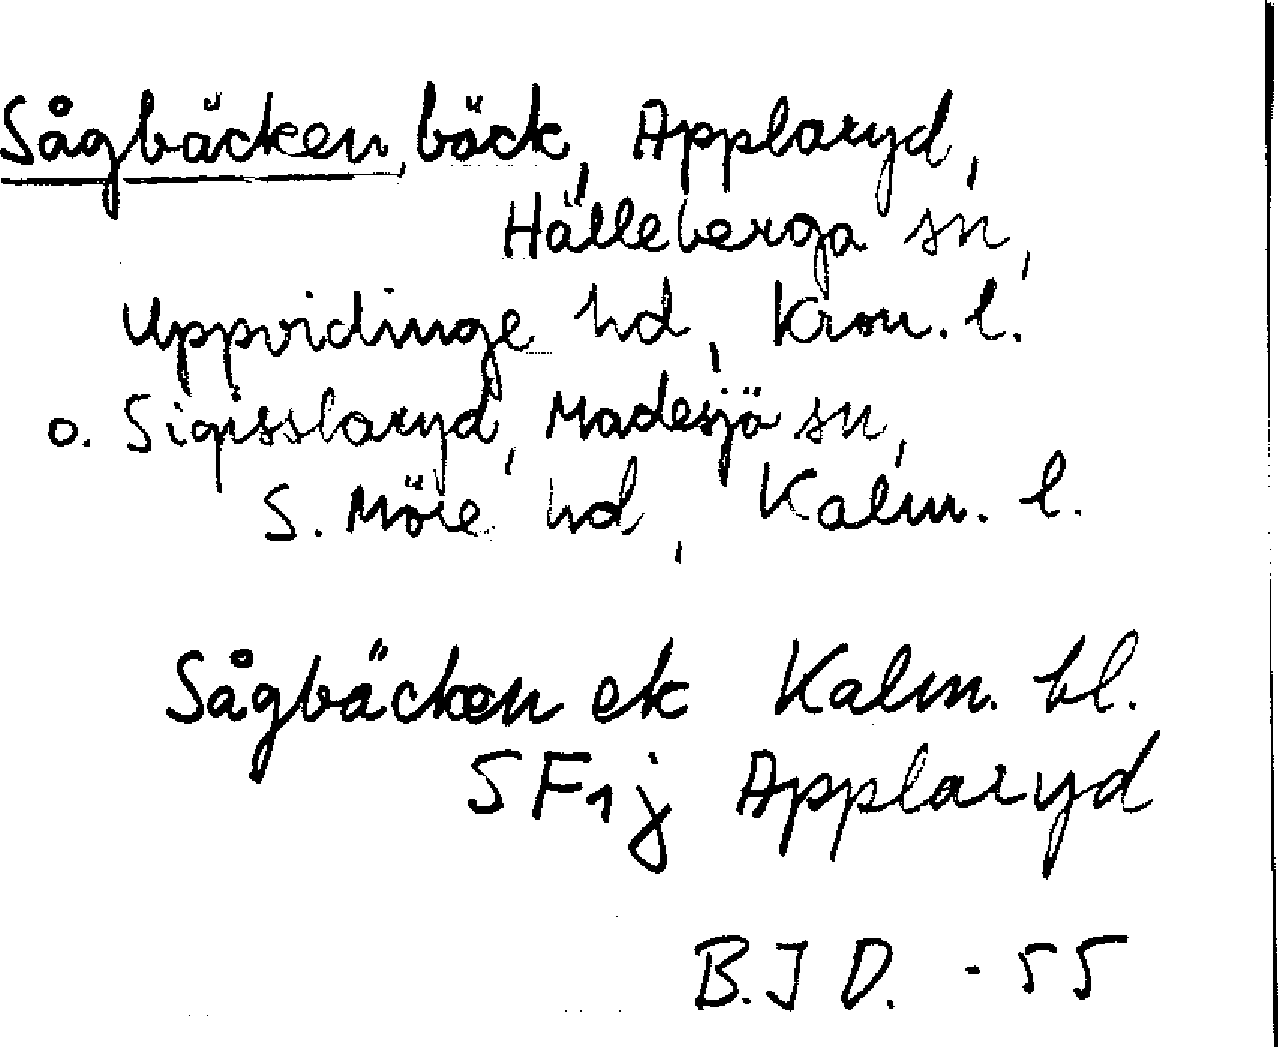 Sågbäcken, bäck, Applaryd,
Hälleberga sn,
Uppvidinge hd, Kron. l.
o. Sigisslaryd, Madesjö sn,
S. Möre hd, Kalm. l.
Sågbäcken ek Kalm. bl.
SF1j Applaryd
B.J D. -55